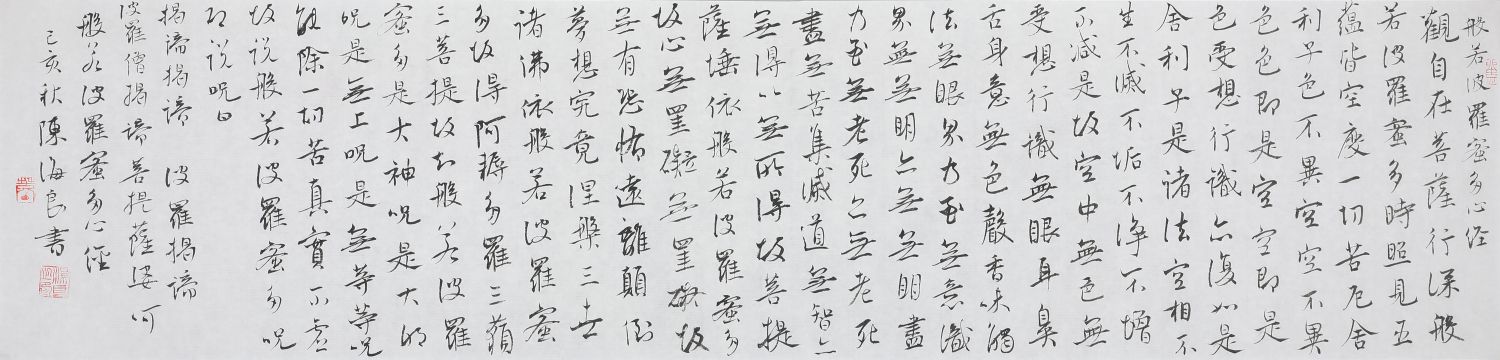 般若波羅蜜多心经
觀自在菩薩行深般
若波羅蜜多時照見五
蘊皆空度一切苦厄舍
利子色不異空空不異
色色即是空空即是
色受想行識亦復如是
舍利子是諸法空相不
生不滅不垢不淨不增
不减是故空中無色無
受想行識無眼耳鼻
舌身意無色聲香味觸
法無眼界乃至無意識
界無無明亦無無明盡
乃至無老死亦無老死
盡無苦集滅道無智亦
無得以無所得故菩提
薩埵依般若波羅蜜多
故心無罣礙無罣礙故
無有恐怖遠離顛倒
夢想究竟涅槃三世
諸佛依般若波羅蜜
多故得阿耨多羅三藐
三菩提故知般若波羅
蜜多是大神呪是大明
呪是無上呪是無等等呪
能除一切苦真實不虛
故説般若波羅蜜多呪
即説呪曰
揭諦揭諦 波羅揭諦
波羅僧揭諦菩提薩婆訶
般若波羅蜜多心經
己亥秋陳海良書